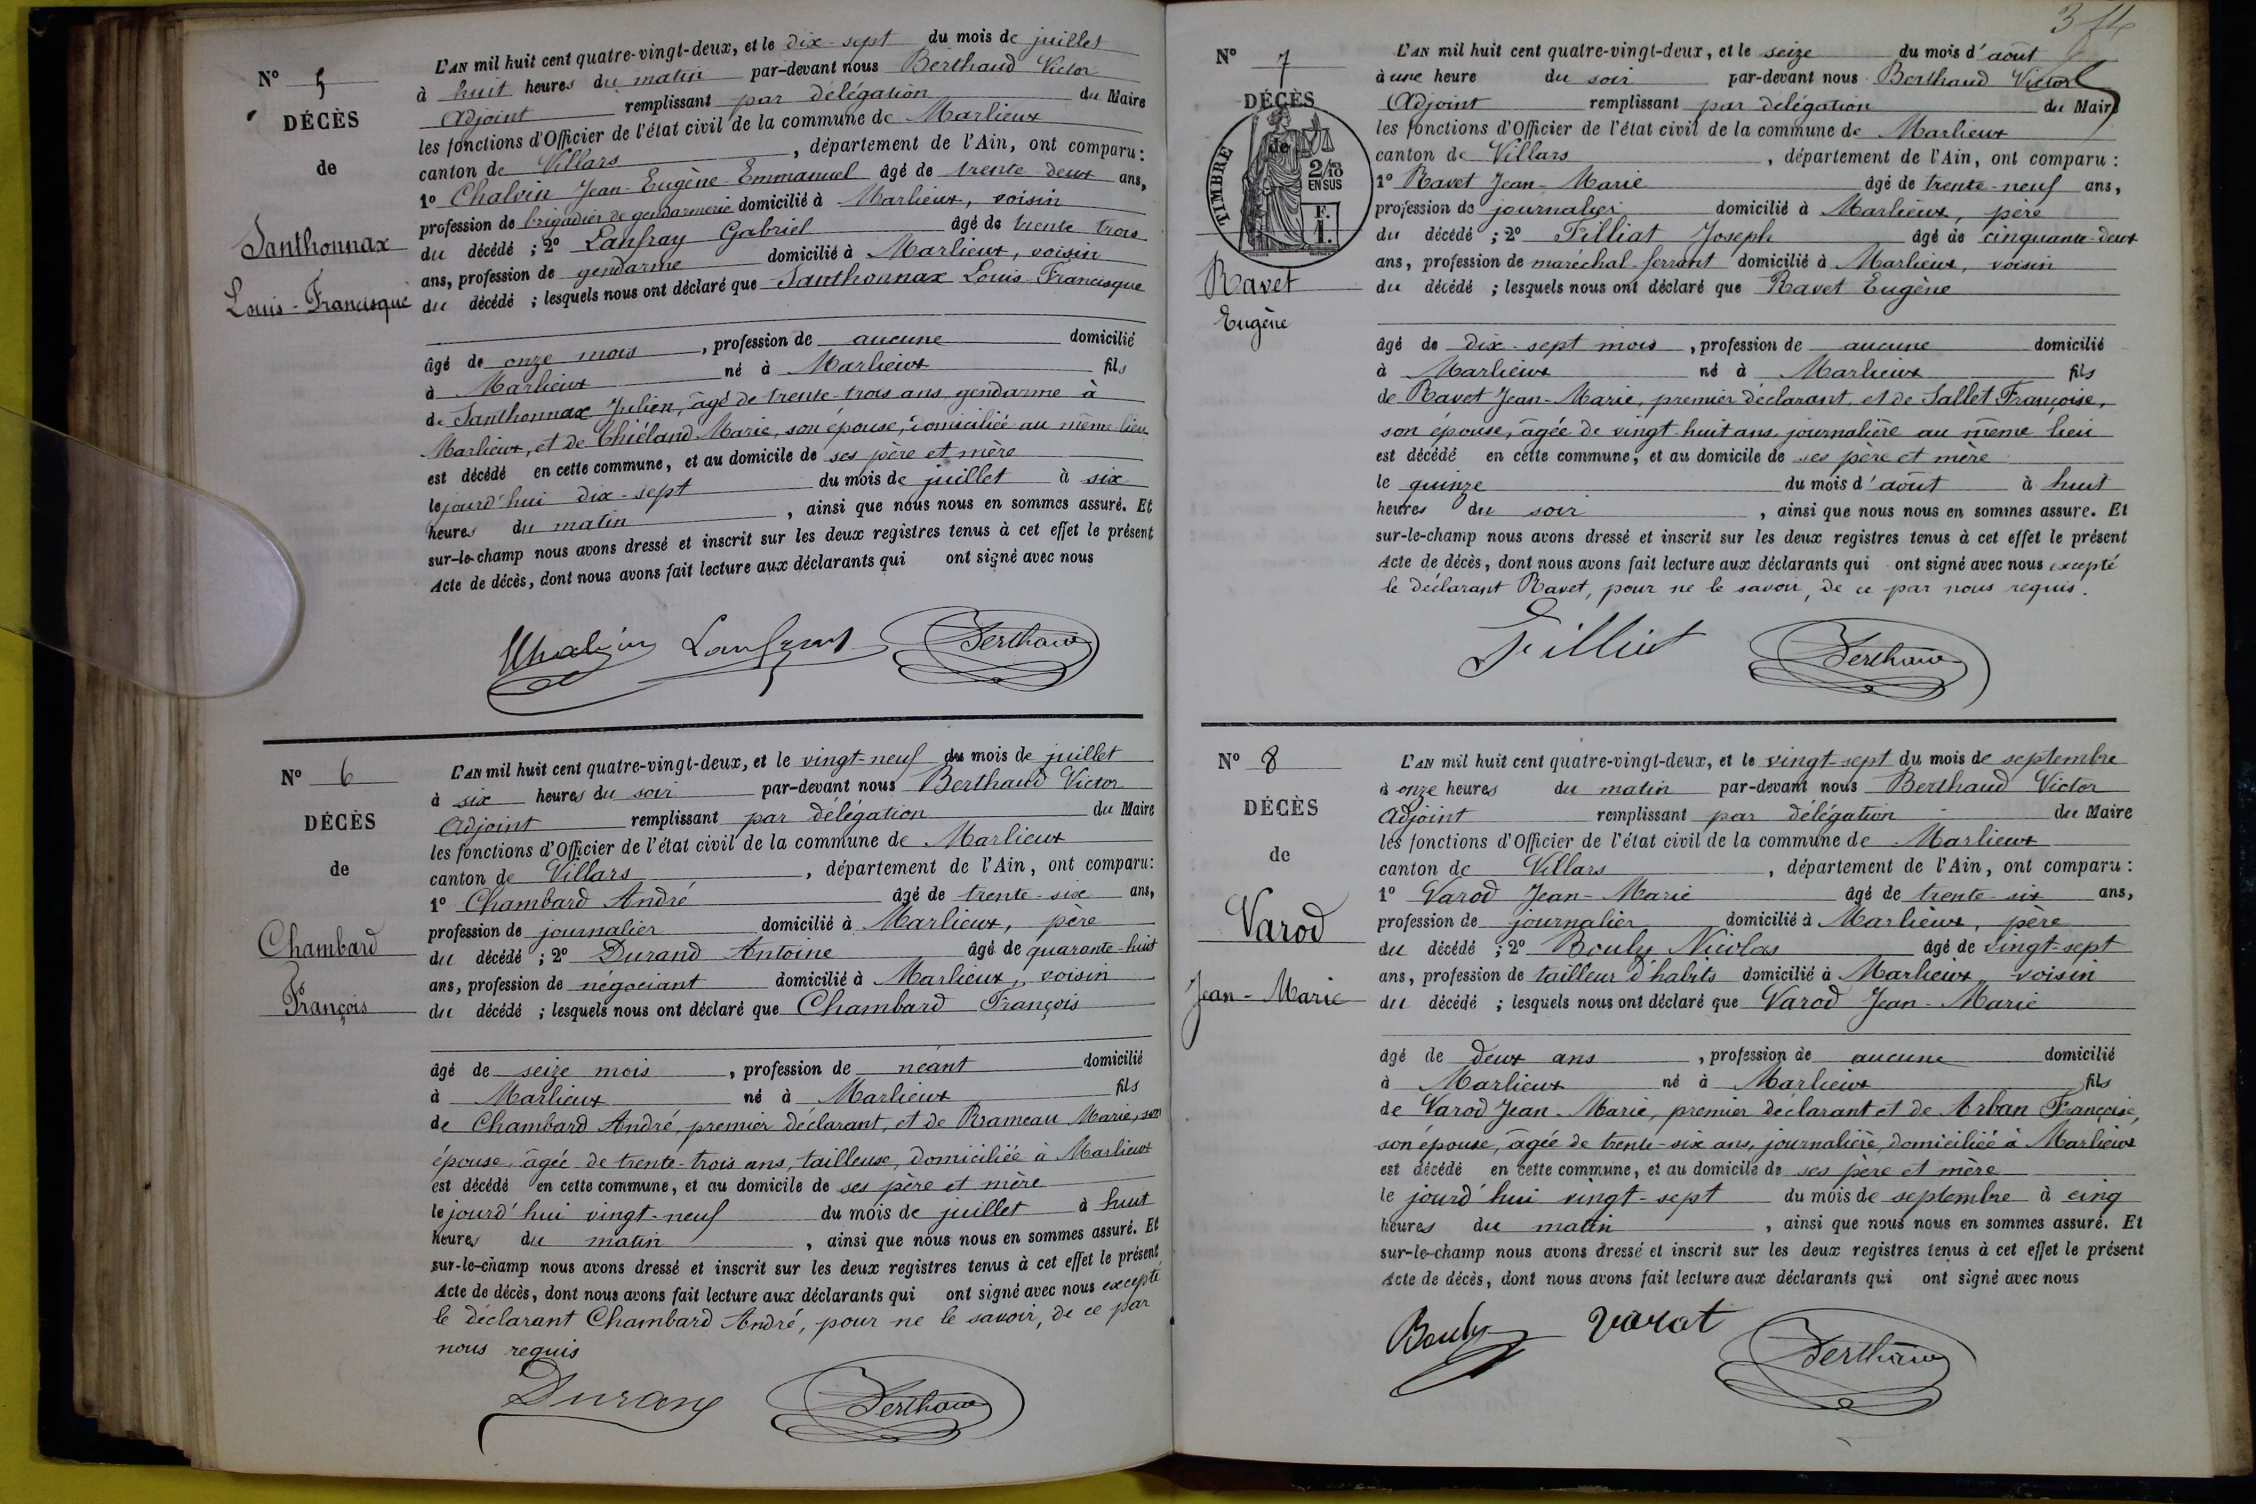 N° 5
DÉCÈS
de
Santhonnax
Louis-Francisque
L'AN mil huit cent quatre-vingt-deux, et le dix-sept du mois de juillet
à huit heures du matin par-devant nous Berthaud Victor
Adjoint remplissant par délégation du Maire
les fonctions d'Officier de l'état civil de la commune de Marlieux
canton de Villars, département de l'Ain, ont comparu:
1° Chalvin Jean-Eugène-Emmanuel âgé de trente-deux ans,
profession de brigadier de gendarmerie domicilié à Marlieux, voisin
du décédé; 2° Lanfray Gabriel âgé de trente trois
ans, profession de gendarme domicilié à Marlieux, voisin
du décédé; lesquels nous ont déclaré que Santhonnax Louis-Francisque
âgé de onze mois, profession de aucune domicilié
à Marlieux né à Marlieux fils
de Santhonnax Julien, âgé de trente-trois ans, gendarme à
Marlieux, et de Chiéland Marie, son épouse, domiciliée au même lieu
est décédé en cette commune, et au domicile de ses père et mère
le jourd'hui dix-sept du mois de juillet à six
heures du matin, ainsi que nous nous en sommes assuré. Et
sur-le-champ nous avons dressé et inscrit sur les deux registres tenus à cet effet le présent
Acte de décès, dont nous avons fait lecture aux déclarants qui ont signé avec nous
Chalvin Lanfray Berthaud
N° 6
DÉCÈS
de
Chambard
François
L'AN mil huit cent quatre-vingt-deux, et le vingt-neuf du mois de juillet
à six heures du soir par-devant nous Berthaud Victor
Adjoint remplissant par délégation du Maire
les fonctions d'Officier de l'état civil de la commune de Marlieux
canton de Villars, département de l'Ain, ont comparu:
1° Chambard André âgé de trente-six ans,
profession de journalier domicilié à Marlieux, père
du décédé; 2° Durand Antoine âgé de quarante-huit
ans, profession de négociant domicilié à Marlieux, voisin
du décédé; lesquels nous ont déclaré que Chambard François
âgé de seize mois, profession de néant domicilié
à Marlieux né à Marlieux fils
de Chambard André, premier déclarant, et de Rameau Marie, son
épouse, âgée de trente-trois ans, tailleuse, domiciliée à Marlieux
est décédé en cette commune, et au domicile de ses père et mère
le jourd'hui vingt-neuf du mois de juillet à huit
heures du matin, ainsi que nous nous en sommes assuré. Et
sur-le-champ nous avons dressé et inscrit sur les deux registres tenus à cet effet le présent
Acte de décès, dont nous avons fait lecture aux déclarants qui ont signé avec nous excepté
le déclarant Chambard André, pour ne le savoir, de ce par
nous requis
Durand Berthaud
N° 7
DÉCÈS
de
TIMBRE
2/10
EN SUS
F.
1.
Ravet
Eugène
L'AN mil huit cent quatre-vingt-deux, et le seize du mois d'août
à une heure du soir par-devant nous Berthaud Victor
Adjoint remplissant par délégation du Maire
les fonctions d'Officier de l'état civil de la commune de Marlieux
canton de Villars, département de l'Ain, ont comparu:
1° Ravet Jean-Marie âgé de trente-neuf ans,
profession de journalier domicilié à Marlieux, père
du décédé; 2° Filliat Joseph âgé de cinquante-deux
ans, profession de maréchal-ferrant domicilié à Marlieux, voisin
du décédé; lesquels nous ont déclaré que Ravet Eugène
âgé de dix-sept mois, profession de aucune domicilié
à Marlieux né à Marlieux fils
de Ravet Jean-Marie, premier déclarant, et de Sallet Françoise,
son épouse, âgée de vingt-huit ans, journalière au même lieu
est décédé en cette commune, et au domicile de ses père et mère
le quinze du mois d'août à huit
heures du soir, ainsi que nous nous en sommes assuré. Et
sur-le-champ nous avons dressé et inscrit sur les deux registres tenus à cet effet le présent
Acte de décès, dont nous avons fait lecture aux déclarants qui ont signé avec nous excepté
le déclarant Ravet, pour ne le savoir, de ce par nous requis.
Filliat Berthaud
N° 8
DÉCÈS
de
Varod
Jean-Marie
L'AN mil huit cent quatre-vingt-deux, et le vingt-sept du mois de septembre
à onze heures du matin par-devant nous Berthaud Victor
Adjoint remplissant par délégation du Maire
les fonctions d'Officier de l'état civil de la commune de Marlieux
canton de Villars, département de l'Ain, ont comparu:
1° Varod Jean-Marie âgé de trente-six ans,
profession de journalier domicilié à Marlieux, père
du décédé; 2° Bouly Nicolas âgé de vingt-sept
ans, profession de tailleur d'habits domicilié à Marlieux, voisin
du décédé; lesquels nous ont déclaré que Varod Jean-Marie
âgé de deux ans, profession de aucune domicilié
à Marlieux né à Marlieux fils
de Varod Jean-Marie, premier déclarant et de Arban Françoise,
son épouse, âgée de trente-six ans, journalière, domiciliée à Marlieux
est décédé en cette commune, et au domicile de ses père et mère
le jourd'hui vingt-sept du mois de septembre à cinq
heures du matin, ainsi que nous nous en sommes assuré. Et
sur-le-champ nous avons dressé et inscrit sur les deux registres tenus à cet effet le présent
Acte de décès, dont nous avons fait lecture aux déclarants qui ont signé avec nous
Bouly varot Berthaud